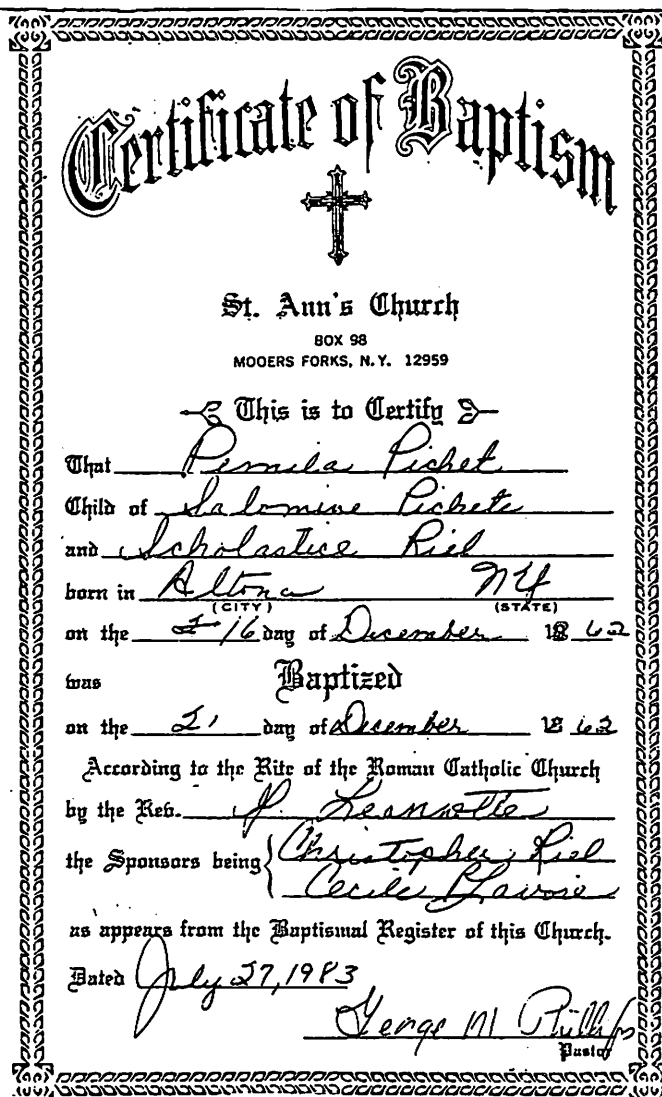 Certificate of Baptism
St. Ann's Church
BOX 98
MOOERS FORKS, N.Y. 12959
This is to Certify
That Pemila Pichet
Child of Salomine Pichete
and Scholastice Riel
born in Altona NY
(CITY) (STATE)
on the 16 day of December 1862
was Baptized
on the 21 day of December 1862
According to the Rite of the Roman Catholic Church
by the Rev. J. Jeannotte
the Sponsors being Christopher Riel
Cecile Lavoie
as appears from the Baptismal Register of this Church.
Dated July 27, 1983
George M Phillips
Pastor